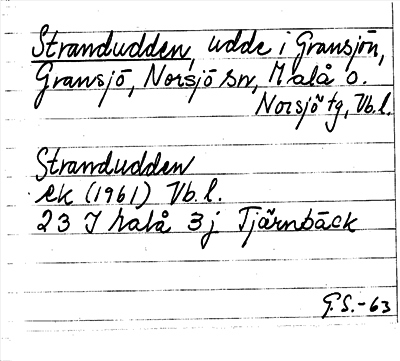 Strandudden, udde i Gransjön,
Gransjö, Norsjö sn, Malå o.
Norsjö tg, Vb.l.
Strandudden
ek (1961) Vb.l.
23 J Malå 3j Tjärnbäck
G.S.-63